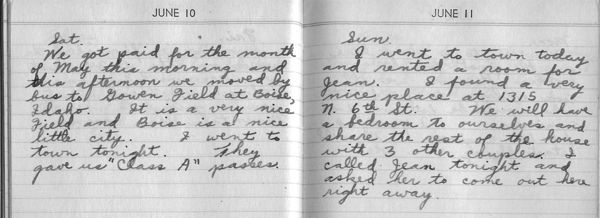 JUNE 10
Sat.
We got paid for the month
of May this morning and
this afternoon we moved by
bus to Gowen Field at Boise,
Idaho. It is a very nice
Field and Boise is a nice
little city. I went to
town tonight. They
gave us "Class A" passes.
JUNE 11
Sun.
I went to town today
and rented a room for
Jean. I found a very
nice place at 1315
N. 6th St. We will have
a bedroom to ourselves and
share the rest of the house
with 3 other couples. I
called Jean tonight and
asked her to come out here
right away.